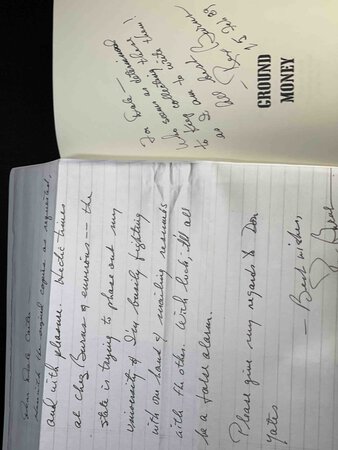 GROUND
MONEY
For Dale —
determined
as
collecting
those
Who
write
them!
All best
25 Feb 89
Dale Carter
the signed copies as requested,
and with pleasure. Hectic times
at chez Burns & environs -- the
state is trying to phase out my
university & I'm busily fighting
with one hand & mailing resumés
with the other. With luck, it'll all
be a false alarm.
Please give my regards to Don
Yates.
— Best wishes,